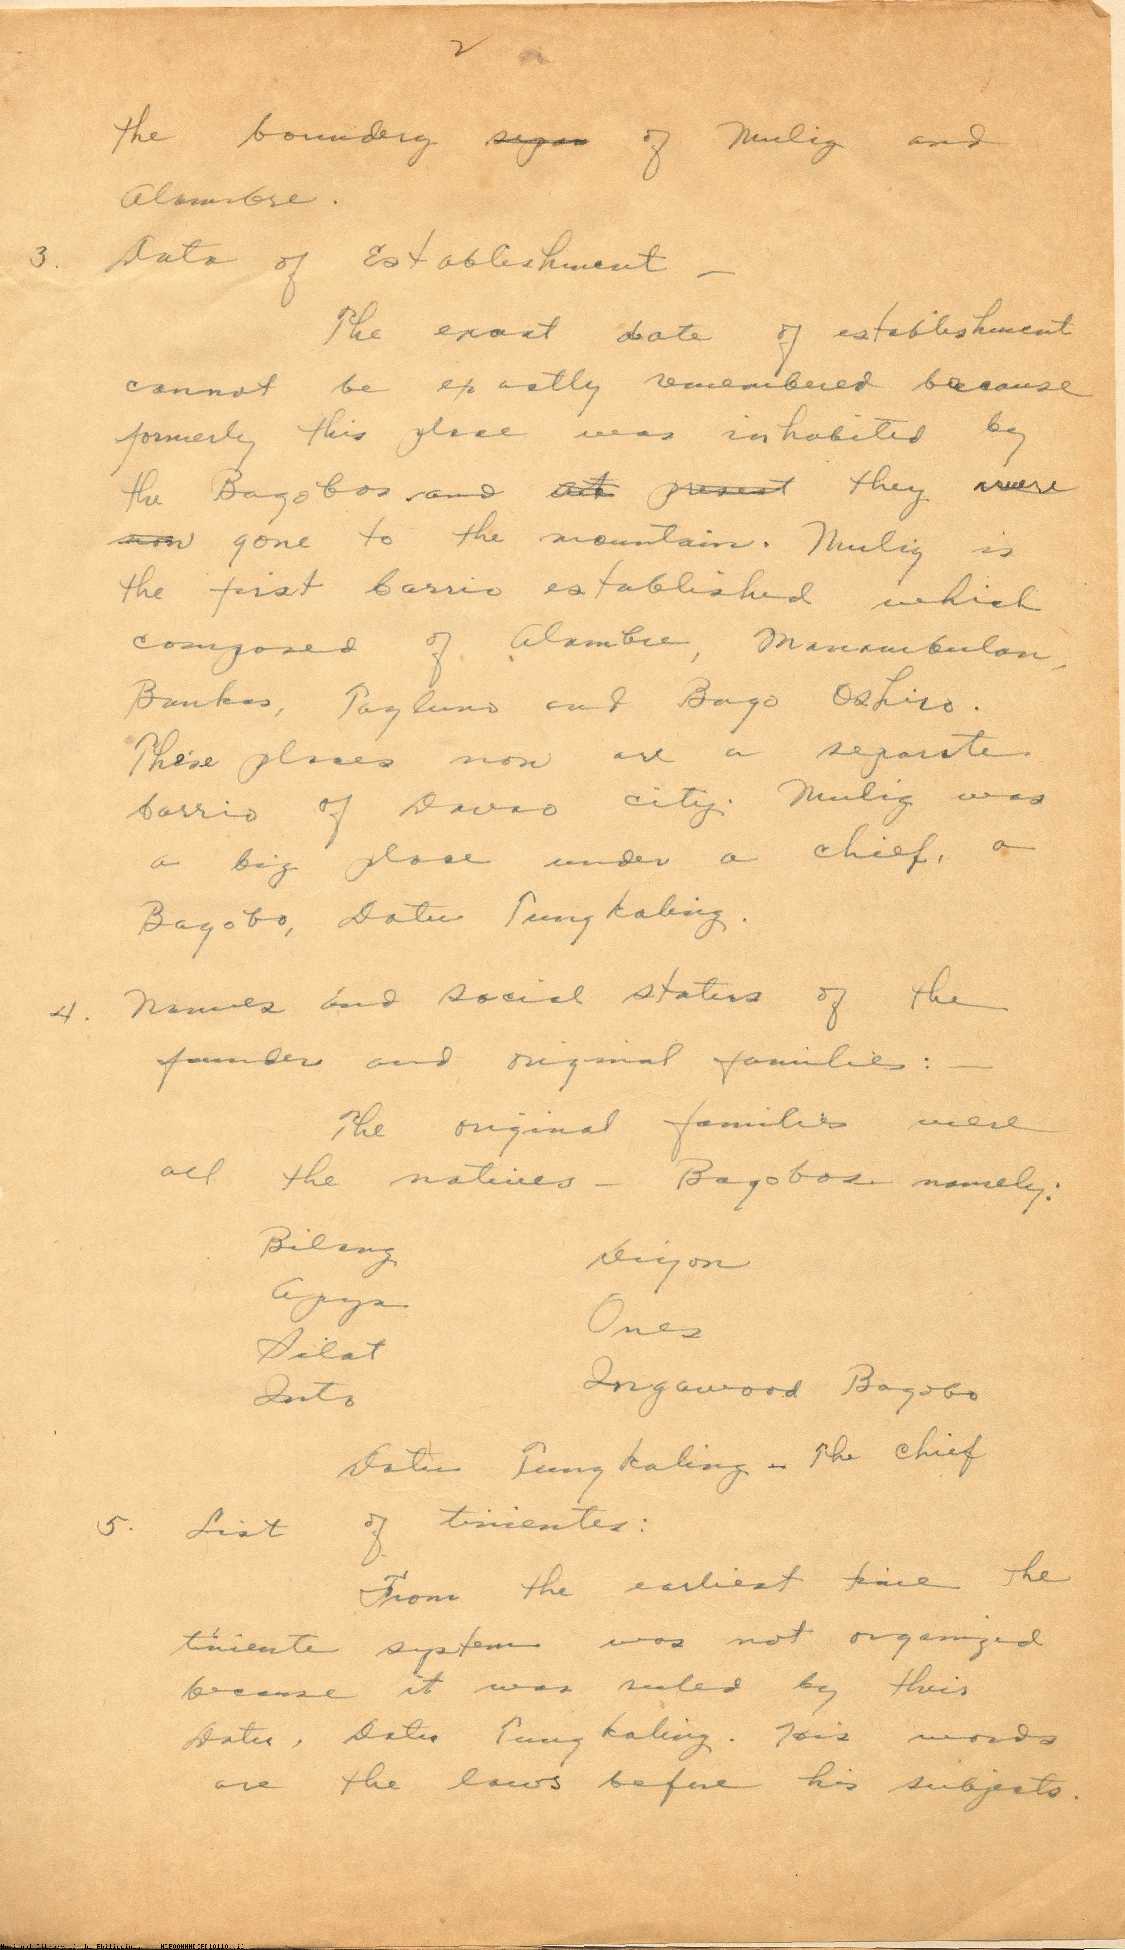 2
the boundery segan of Mulig and
Alambre.
3. Data of Establishment —
The exact date of establishment
cannot be exactly remembered because
formerly this place was inhabited by
the Bagobos and at present they were
now gone to the mountain. Mulig is
the first barrio established which
composed of Alambre, Manambulan,
Bankas, Tagluno and Bago Oshiro.
These places now are a separate
barrio of Davao city. Mulig was
a big place under a chief, a
Bagobo, Datu Tungkaling.
4. Names and social status of the
founder and original families: —
The original families were
all the natives — Bagobos namely:
Bilang Diyon
Apya Ones
Silat Ingawood Bagobo
Into
Datu Tungkaling - The chief
5. List of tinientes:
From the earliest time the
tiniente system was not organized
because it was ruled by their
Datu, Datu Tungkaling. His words
are the laws before his subjects.